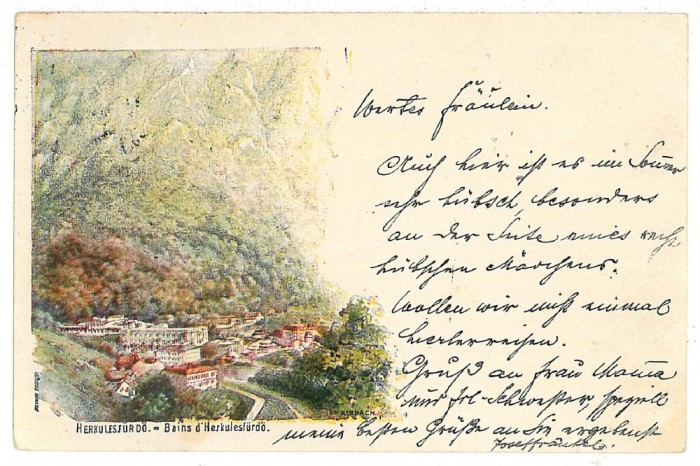 Wertes Fräulein.
Auch hier ist es im Sommer
sehr hübsch, besonders
an der Seite eines recht
hübschen Mädchens.
Wollen wir nicht einmal
hierherreisen.
Gruß an Frau Mama
und Frl. Schwester, speziell
meine besten Grüße an Sie ergebenst
Josef Fränkel.
HERKULESFÜRDŐ. – Bains d'Herkulesfürdő.